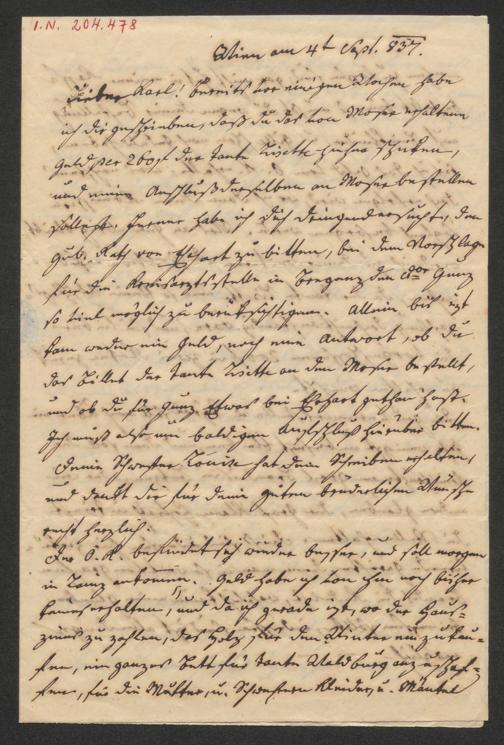 I.N. 204.478
Wien am 4t Sept. 837.
Lieber Karl! Bereits vor einigen Wochen habe
ich dir geschrieben, daß du das von Moser erhaltene
Geld per 260 f der Tante Lisette hieher schicken,
und einen Anschluß derselben an Moser bestellen
sollest, ferner habe ich Dich dringend ersucht, den
Gub. Rath von Ebhart zu bitten, bei dem Vorschlage
für die Kreisarztsstelle in Bregenz den Dor Gunz
so viel möglich zu berücksichtigen. Allein bis jezt
kam weder ein Geld, noch eine Antwort, ob du
das Billet der Tante Lisette an den Moser bestellt,
und ob du für Gunz Etwas bei Ebhart gethan hast.
Ich muß also um baldigen Aufschluß hierüber bitten.
Deine Schwester Louise hat dein Schreiben erhalten,
und dankt dir für deine guten brüderlichen Wünsche
recht herzlich.
Der O. K. befindet sich wieder besser, und soll morgen
in Linz ankommen. Geld habe ich von ihm noch bisher
keines erhalten, und da ich gerade jezt, wo der Haus-
zins zu zahlen, das Holz für den Winter einzukau-
fen, ein ganzes Bett für Tante Waldburg anzuschaf-
fen, für die Mutter, u. Schwestern Kleider, u. Mäntel